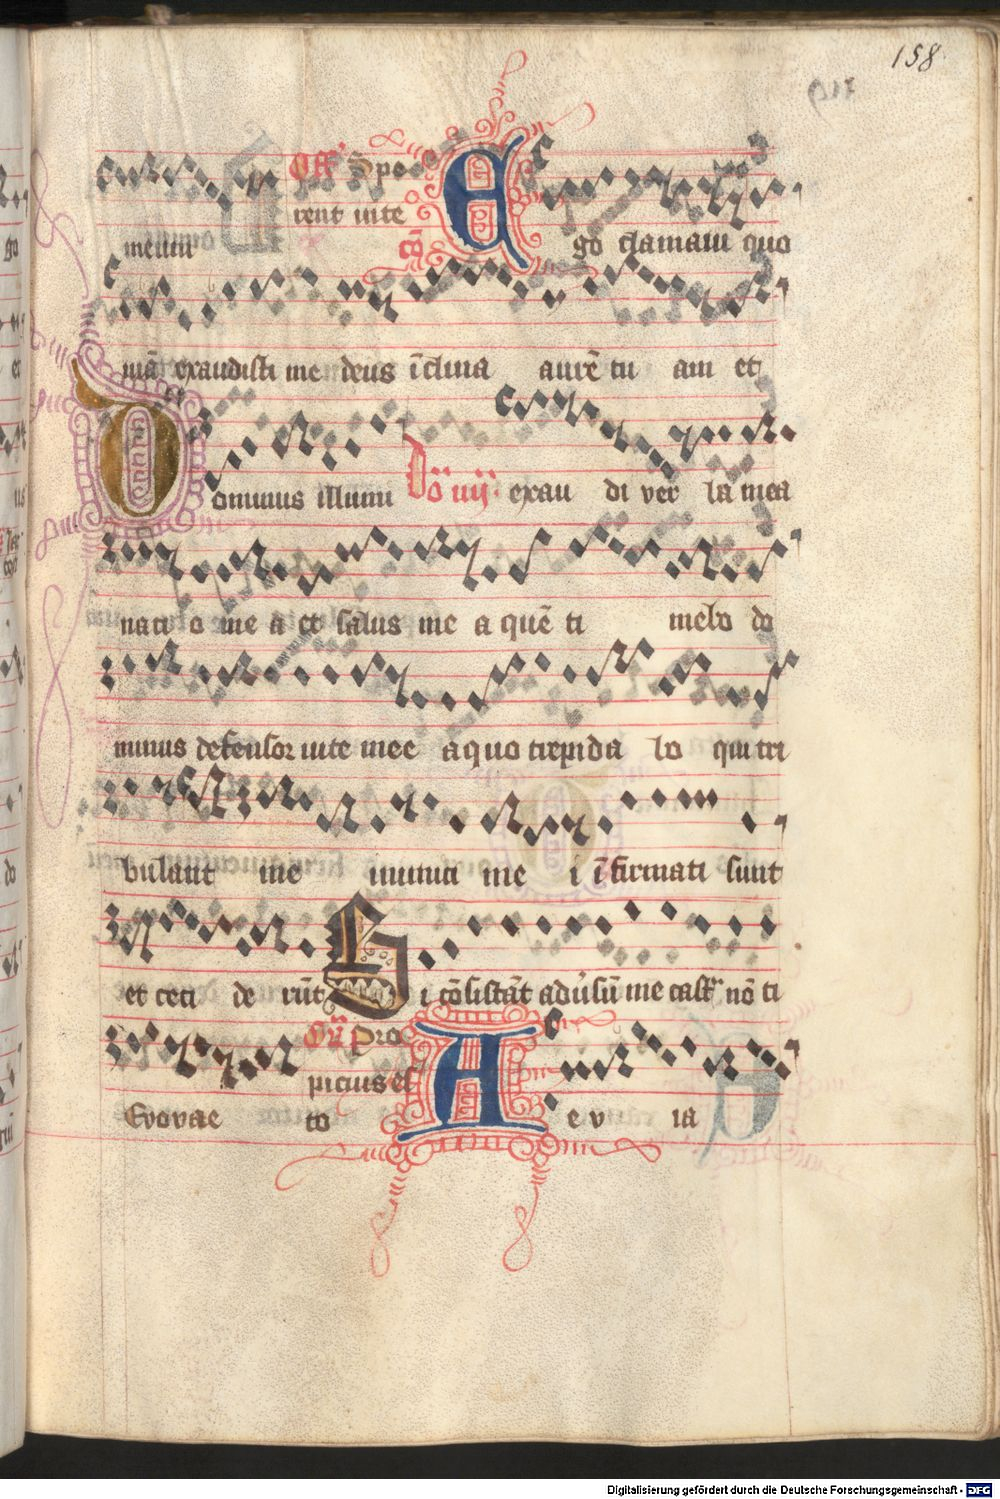 158
Off' Spe
rent in te
mentū Cō Ego clamaui quo
niā exaudisti me deus īclina aurē tu am et
Dominus illumi Dō iiij exau di ver ba mea
nati o me a et salus me a quē ti mebo do
minus defensor uite mee a quo trepida bo qui tri
bulant me inimici me i īfirmati sunt
et ceci de rūt Si cōsistāt aduˀsū me castˀ nō ti
Vˀ Pro
picius es
Evovae to Ae v ia
Digitalisierung gefördert durch die Deutsche Forschungsgemeinschaft - DFG